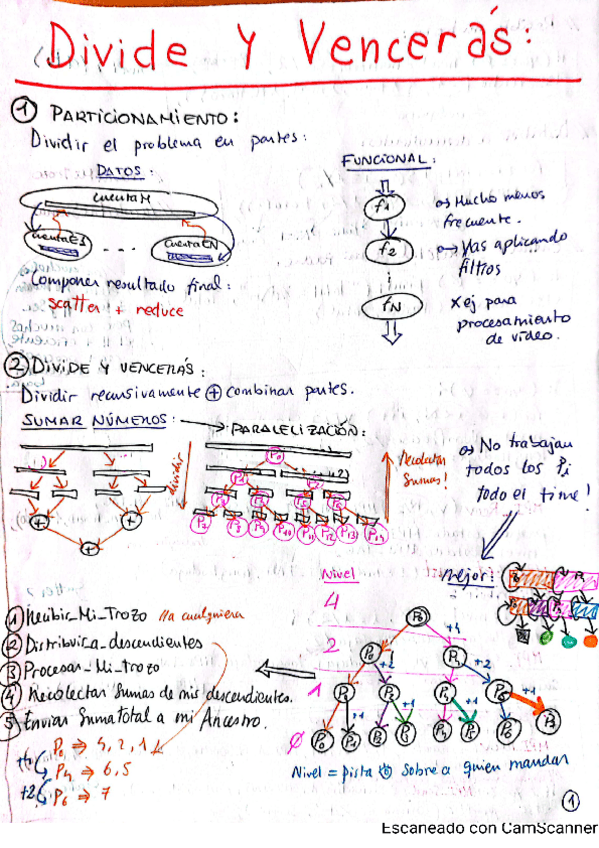 Divide y Vencerás:
① PARTICIONAMIENTO:
Dividir el problema en partes:
DATOS:
cuentaM
cuentaE1
...
cuentaEN
Componer resultado final:
scatter + reduce
FUNCIONAL:
f1
f2
fN
Mucho menos
frecuente.
Vas aplicando
filtros
x ej para
procesamiento
de vídeo.
② DIVIDE Y VENCERÁS:
Dividir recursivamente ⊕ combinar partes.
SUMAR NÚMEROS:
dividir
+
+
+
PARALELIZACIÓN:
P0
P1
P2
Recolectar
Sumas!
No trabajan
todos los Pi
todo el time!
mejor:
① Recibir_Mi_Trozo //a cualquiera
② Distribuir_a_descendientes
③ Procesar_Mi_trozo
④ Recolectar Sumas de mis descendientes.
⑤ Enviar SumaTotal a mi Ancestro.
P0 ⇒ 4, 2, 1
+4
P4 ⇒ 6, 5
+2
P6 ⇒ 7
Nivel
4
2
1
Ø
P0
+4
P0
+2
P4
+2
+1
+1
+1
+1
Nivel = pista sobre a quien mandar
①
Escaneado con CamScanner